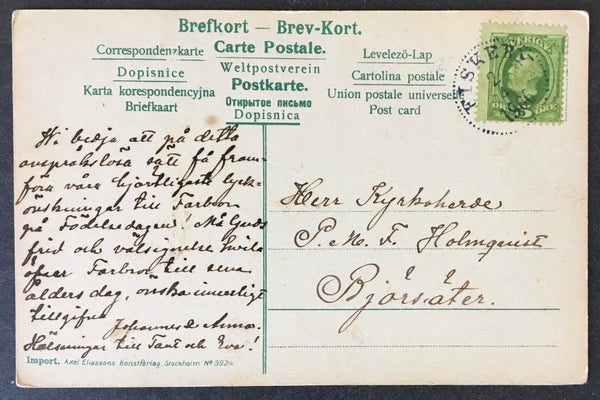 Brefkort — Brev-Kort.
Correspondenzkarte Carte Postale. Levelezö-Lap
Dopisnice Weltpostverein Cartolina postale
Karta korespondencyjna Postkarte. Union postale universelle
Briefkaart Открытое письмо Post card
Dopisnica
SVERIGE
5
FISKEBY
2
Vi bedja att på detta
anspråkslösa sätt få fram-
föra våra hjärtligaste lyck-
önskningar till Farbror
på Födelsedagen! Må Guds
frid och välsignelse hvila
öfver Farbror till sena
ålders dag, önska innerligt
tillgifna
Johannes & Anna.
Hälsningar till Tant och Eva!
Herr Kyrkoherde
P. M. F. Holmquist
Björsäter.
Import. Axel Eliassons Konstförlag Stockholm Nº 3924